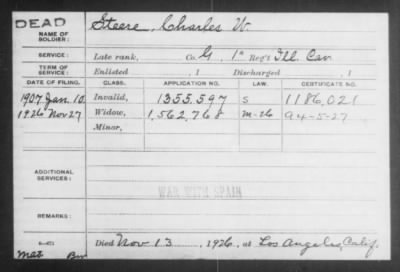 DEAD
NAME OF SOLDIER: Steere, Charles W.
SERVICE: Late rank, Co. G, 1st Reg't Ill. Cav.
TERM OF SERVICE: Enlisted , 1 Discharged , 1
DATE OF FILING. CLASS. APPLICATION NO. LAW. CERTIFICATE NO.
1907 Jan. 10. Invalid, 1355.597 S 1186,021
1926 Nov 27 Widow, 1,562,768 M-26 A4-5-27
Minor,
ADDITIONAL SERVICES:
WAR WITH SPAIN
REMARKS:
Died Nov 13, 1926, at Los Angeles, Calif.